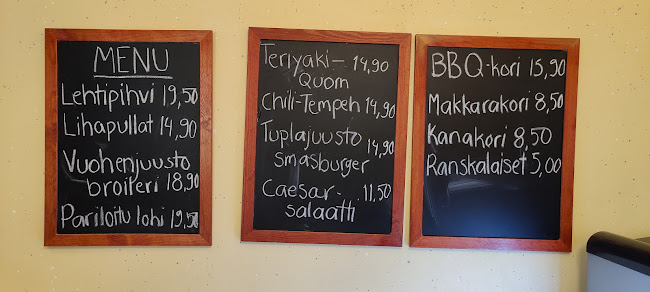 MENU
Lehtipihvi 19,50
Lihapullat 14,90
Vuohenjuusto
broileri 18,90
Pariloitu lohi 19,50
Teriyaki- 14,90
Quorn
Chili-Tempeh 14,90
Tuplajuusto 14,90
smasburger
Caesar- 11,50
salaatti
BBQ-kori 15,90
Makkarakori 8,50
Kanakori 8,50
Ranskalaiset 5,00